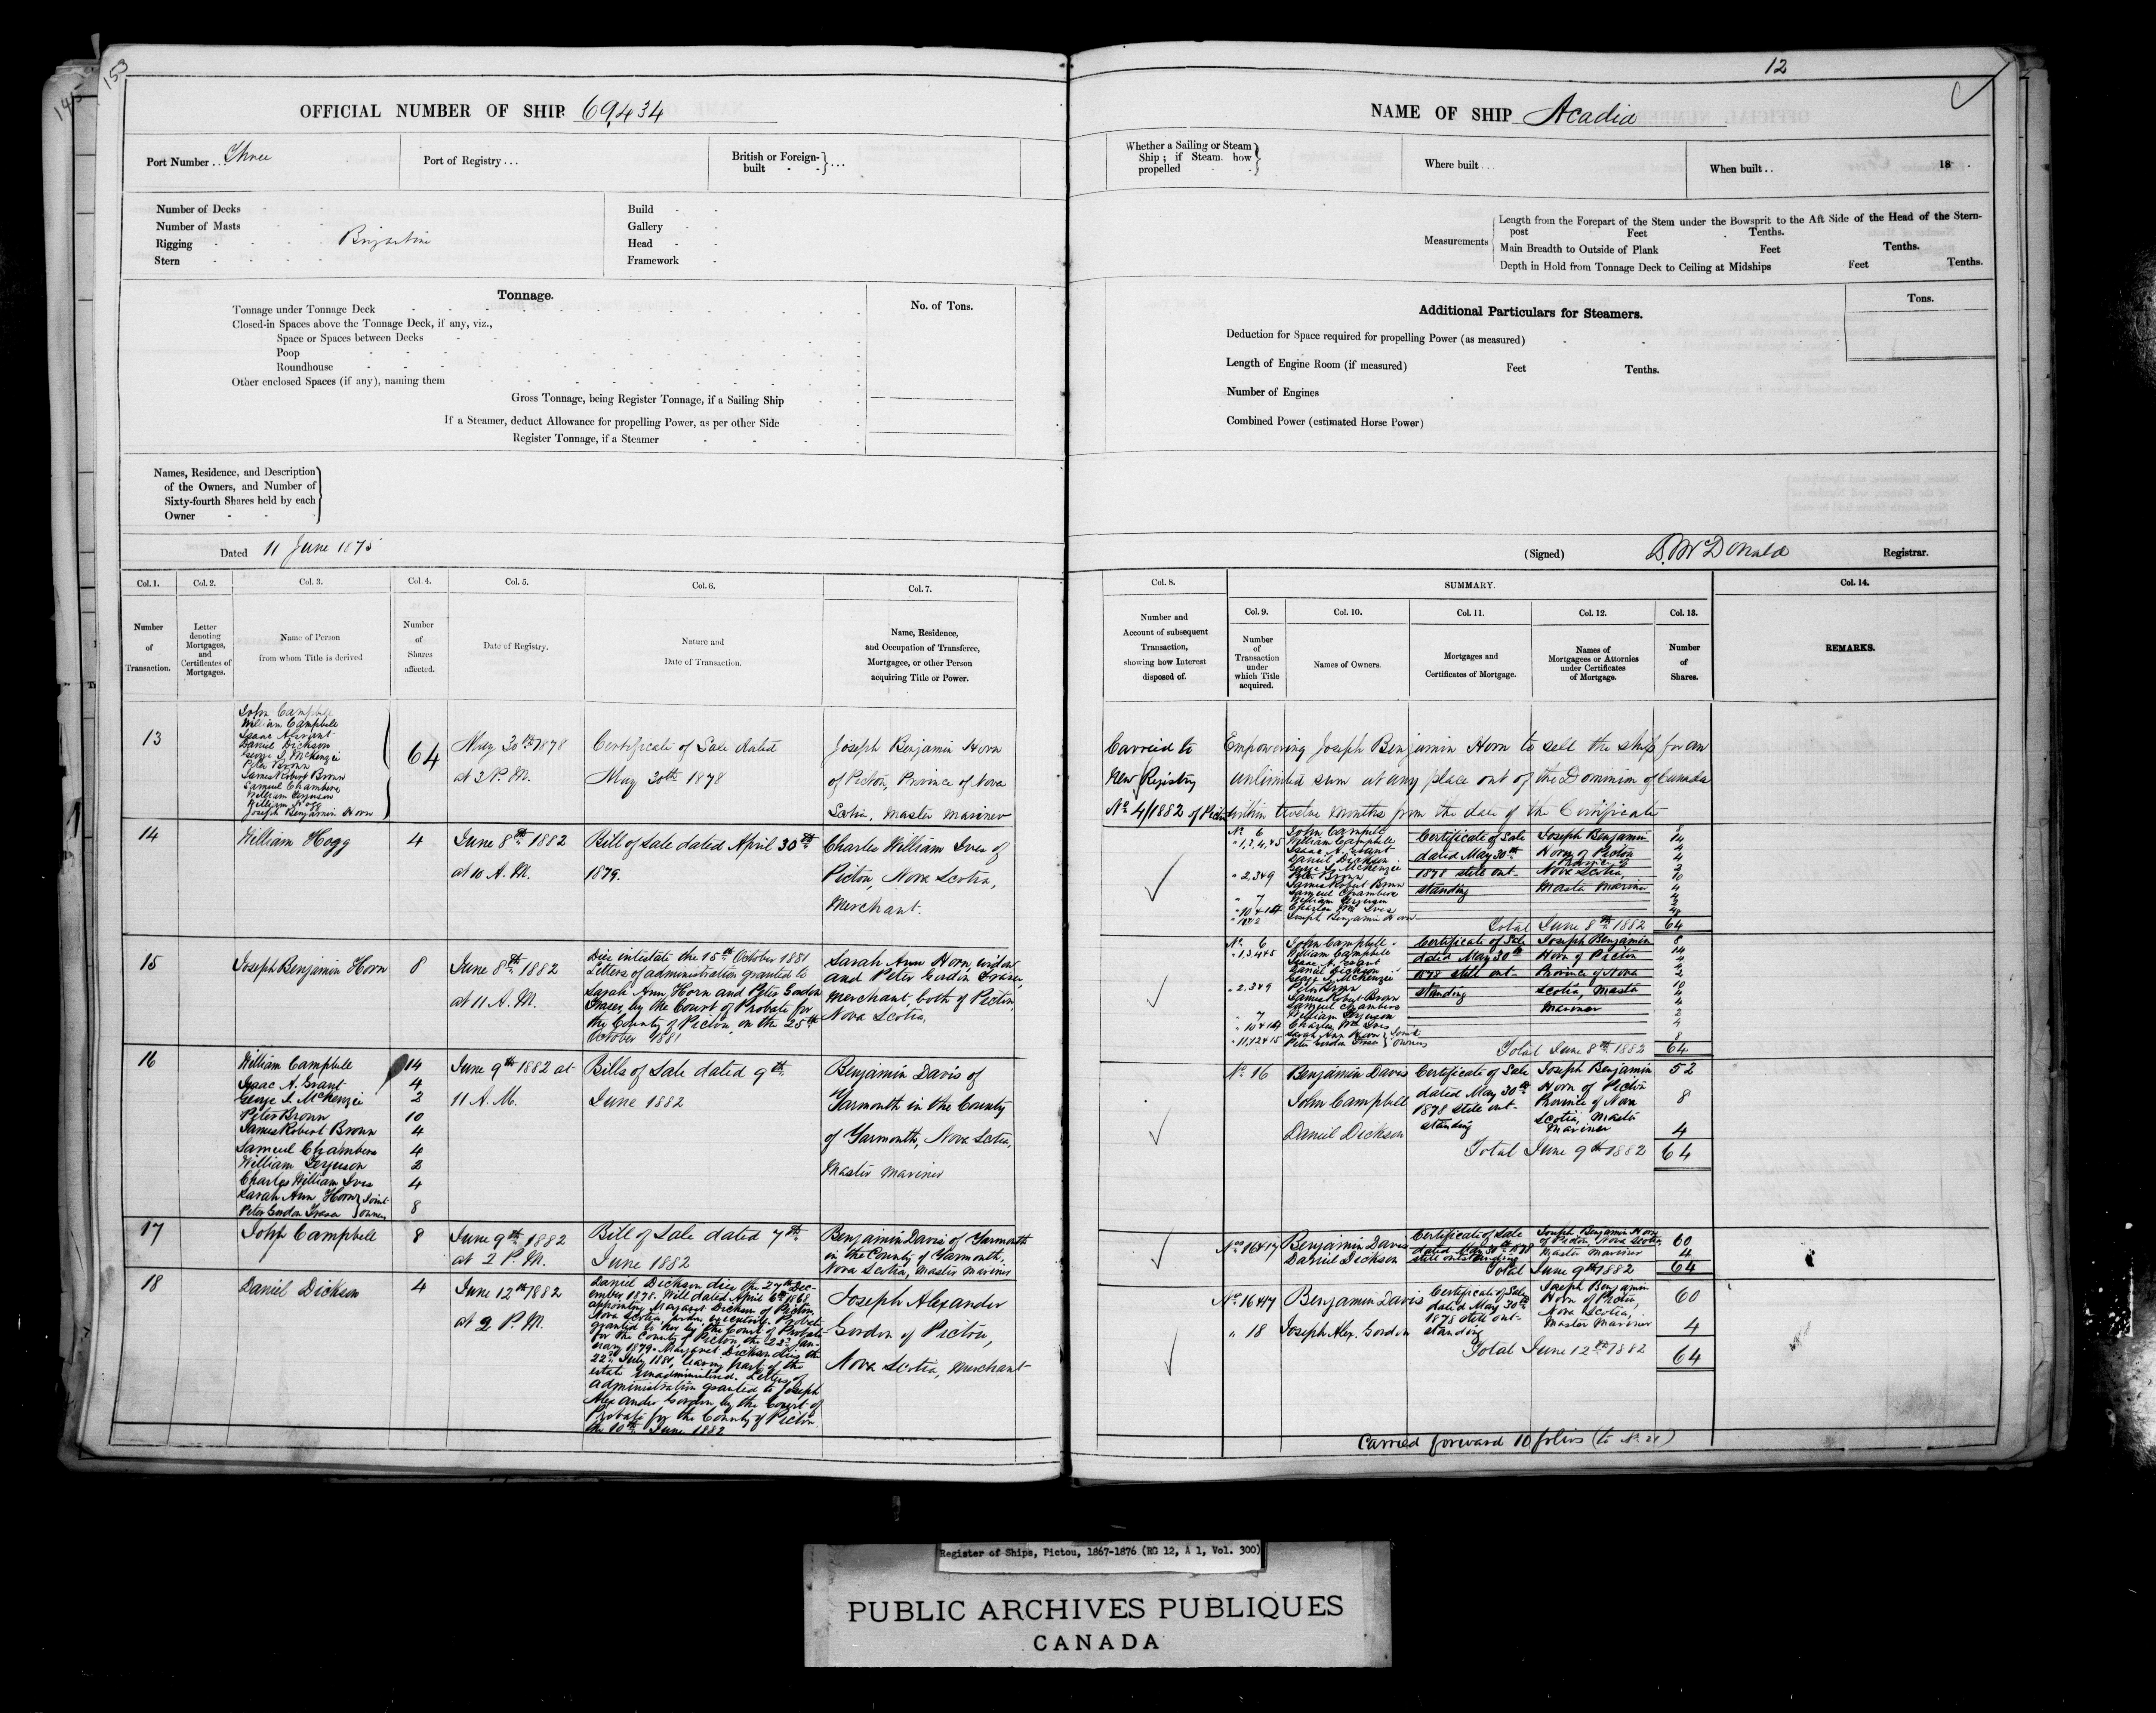 153
145
12
OFFICIAL NUMBER OF SHIP 69,434
NAME OF SHIP Acadia
Port Number... Three
Port of Registry...
British or Foreign-
built - -
Whether a Sailing or Steam
Ship; if Steam how
propelled - -
Where built...
When built.. 18 .
Number of Decks
Number of Masts
Rigging Brigantine
Stern
Build
Gallery
Head
Framework
Measurements
Length from the Forepart of the Stem under the Bowsprit to the Aft Side of the Head of the Stern-
post Feet Tenths.
Main Breadth to Outside of Plank Feet Tenths.
Depth in Hold from Tonnage Deck to Ceiling at Midships Feet Tenths.
Tonnage.
No. of Tons.
Tonnage under Tonnage Deck
Closed-in Spaces above the Tonnage Deck, if any, viz.,
Space or Spaces between Decks
Poop
Roundhouse
Other enclosed Spaces (if any), naming them
Gross Tonnage, being Register Tonnage, if a Sailing Ship
If a Steamer, deduct Allowance for propelling Power, as per other Side
Register Tonnage, if a Steamer
Additional Particulars for Steamers.
Tons.
Deduction for Space required for propelling Power (as measured)
Length of Engine Room (if measured) Feet Tenths.
Number of Engines
Combined Power (estimated Horse Power)
Names, Residence, and Description
of the Owners, and Number of
Sixty-fourth Shares held by each
Owner
Dated 11 June 1875
(Signed) D. McDonald Registrar.
Col. 1. Col. 2. Col. 3. Col. 4. Col. 5. Col. 6. Col. 7.
Number
of
Transaction.
Letter
denoting
Mortgages,
and
Certificates of
Mortgages.
Name of Person
from whom Title is derived
Number
of
Shares
affected.
Date of Registry.
Nature and
Date of Transaction.
Name, Residence,
and Occupation of Transferee,
Mortgagee, or other Person
acquiring Title or Power.
Col. 8. SUMMARY. Col. 14.
Col. 9. Col. 10. Col. 11. Col. 12. Col. 13.
Number and
Account of subsequent
Transaction,
showing how Interest
disposed of.
Number
of
Transaction
under
which Title
acquired.
Names of Owners.
Mortgages and
Certificates of Mortgage.
Names of
Mortgagees or Attornies
under Certificates
of Mortgage.
Number
of
Shares.
REMARKS.
13
John Campbell
William Campbell
Isaac A Grant
Daniel Dickson
George I. McKenzie
Peter Brown
James Robert Brown
Samuel Chambers
William Ferguson
William Hogg
Joseph Benjamin Horn
64
May 30th 1878
at 2 P.M.
Certificate of Sale dated
May 30th 1878
Joseph Benjamin Horn
of Pictou, Province of Nova
Scotia, Master Mariner
Carried to
New Registry
No 4/1882 of Pictou
Empowering Joseph Benjamin Horn to sell the ship for an
unlimited sum at any place out of the Dominion of Canada
within twelve months from the date of the Certificate
14
William Hogg
4
June 8th 1882
at 10 A.M.
Bill of Sale dated April 30th
1879.
Charles William Ives of
Pictou, Nova Scotia,
Merchant.
No 6 John Campbell
William Campbell
Isaac A. Grant
Daniel Dickson
George I. McKenzie
Peter Brown
James Robert Brown
Samuel Chambers
William Ferguson
Charles Wm Ives
Joseph Benjamin Horn
Certificate of Sale
dated May 30th
1878 still out-
standing
Joseph Benjamin
Horn of Pictou
Province of
Nova Scotia,
Master Mariner
Total June 8th 1882 64
15
Joseph Benjamin Horn
8
June 8th 1882
at 11 A.M.
Died intestate the 15th October 1881
Letters of administration granted to
Sarah Ann Horn and Peter Gordon
Fraser, by the Court of Probate for
the County of Pictou, on the 25th
October 1881
Sarah Ann Horn, widow
and Peter Gordon Fraser,
Merchant, both of Pictou,
Nova Scotia,
No. 6 John Campbell
William Campbell
Isaac A. Grant
Daniel Dickson
George I. McKenzie
Peter Brown
James Robert Brown
Samuel Chambers
William Ferguson
Charles Wm Ives
Sarah Ann Horn
Peter Gordon Fraser
Joint
owners
Certificate of Sale
dated May 30th
1878 still out-
standing
Joseph Benjamin
Horn of Pictou
Province of Nova
Scotia, Master
Mariner
Total June 8th 1882 64
16
William Campbell 14
Isaac A. Grant 4
George I. McKenzie 2
Peter Brown 10
James Robert Brown 4
Samuel Chambers 4
William Ferguson 2
Charles William Ives 4
Sarah Ann Horn
Peter Gordon Fraser
Joint
owners 8
June 9th 1882 at
11 A.M.
Bills of Sale dated 9th
June 1882
Benjamin Davis of
Yarmouth in the County
of Yarmouth, Nova Scotia,
Master Mariner
No. 16 Benjamin Davis 52
John Campbell 8
Daniel Dickson 4
Certificate of Sale
dated May 30th
1878 still out-
standing
Joseph Benjamin
Horn of Pictou
Province of Nova
Scotia, Master
Mariner
Total June 9th 1882 64
17
John Campbell
8
June 9th 1882
at 2 P.M.
Bill of Sale dated 7th
June 1882
Benjamin Davis of Yarmouth
in the County of Yarmouth,
Nova Scotia, Master Mariner
Nos 16&17 Benjamin Davis 60
Daniel Dickson 4
Certificate of Sale
dated May 30th 1878
still outstanding
Joseph Benjamin Horn
of Pictou, Nova Scotia,
Master Mariner
Total June 9th 1882 64
18
Daniel Dickson
4
June 12th 1882
at 2 P.M.
Daniel Dickson died the 27th Dec-
ember 1878. Will dated April 6th 1868
appointing Margaret Dickson of Pictou,
Nova Scotia, executrix. Probate
granted to her by the Court of Probate
for the County of Pictou the 22nd Jan-
uary 1879. Margaret Dickson died the
22nd July 1881, leaving part of the
estate unadministered. Letters of
administration granted to Joseph
Alexander Gordon by the Court of
Probate for the County of Pictou
the 10th June 1882
Joseph Alexander
Gordon of Pictou,
Nova Scotia, Merchant
No. 16&17 Benjamin Davis 60
" 18 Joseph Alex. Gordon 4
Certificate of Sale
dated May 30th
1878 still out-
standing
Joseph Benjamin
Horn of Pictou,
Nova Scotia,
Master Mariner
Total June 12th 1882 64
Carried forward 10 folios (to No. 21)
Register of Ships, Pictou, 1867-1876 (RG 12, A 1, Vol. 300)
PUBLIC ARCHIVES PUBLIQUES
CANADA